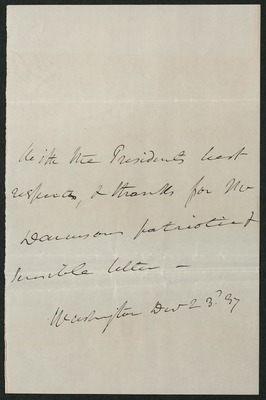 With the Presidents best
respects, & thanks for Mr
patriotic &
sensible letter —
Washington 23ᵈ 37